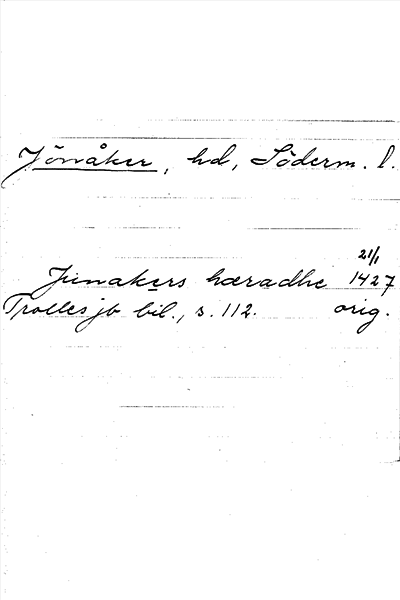 Jönåker, hd, Söderm. l.
21/1
Junakers hæradhe 1427
Trolles jb bil., s. 112. orig.